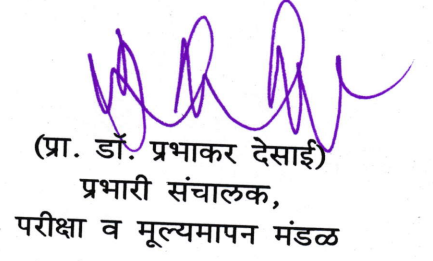 (प्रा. डॉ. प्रभाकर देसाई)
प्रभारी संचालक,
परीक्षा व मूल्यमापन मंडळ